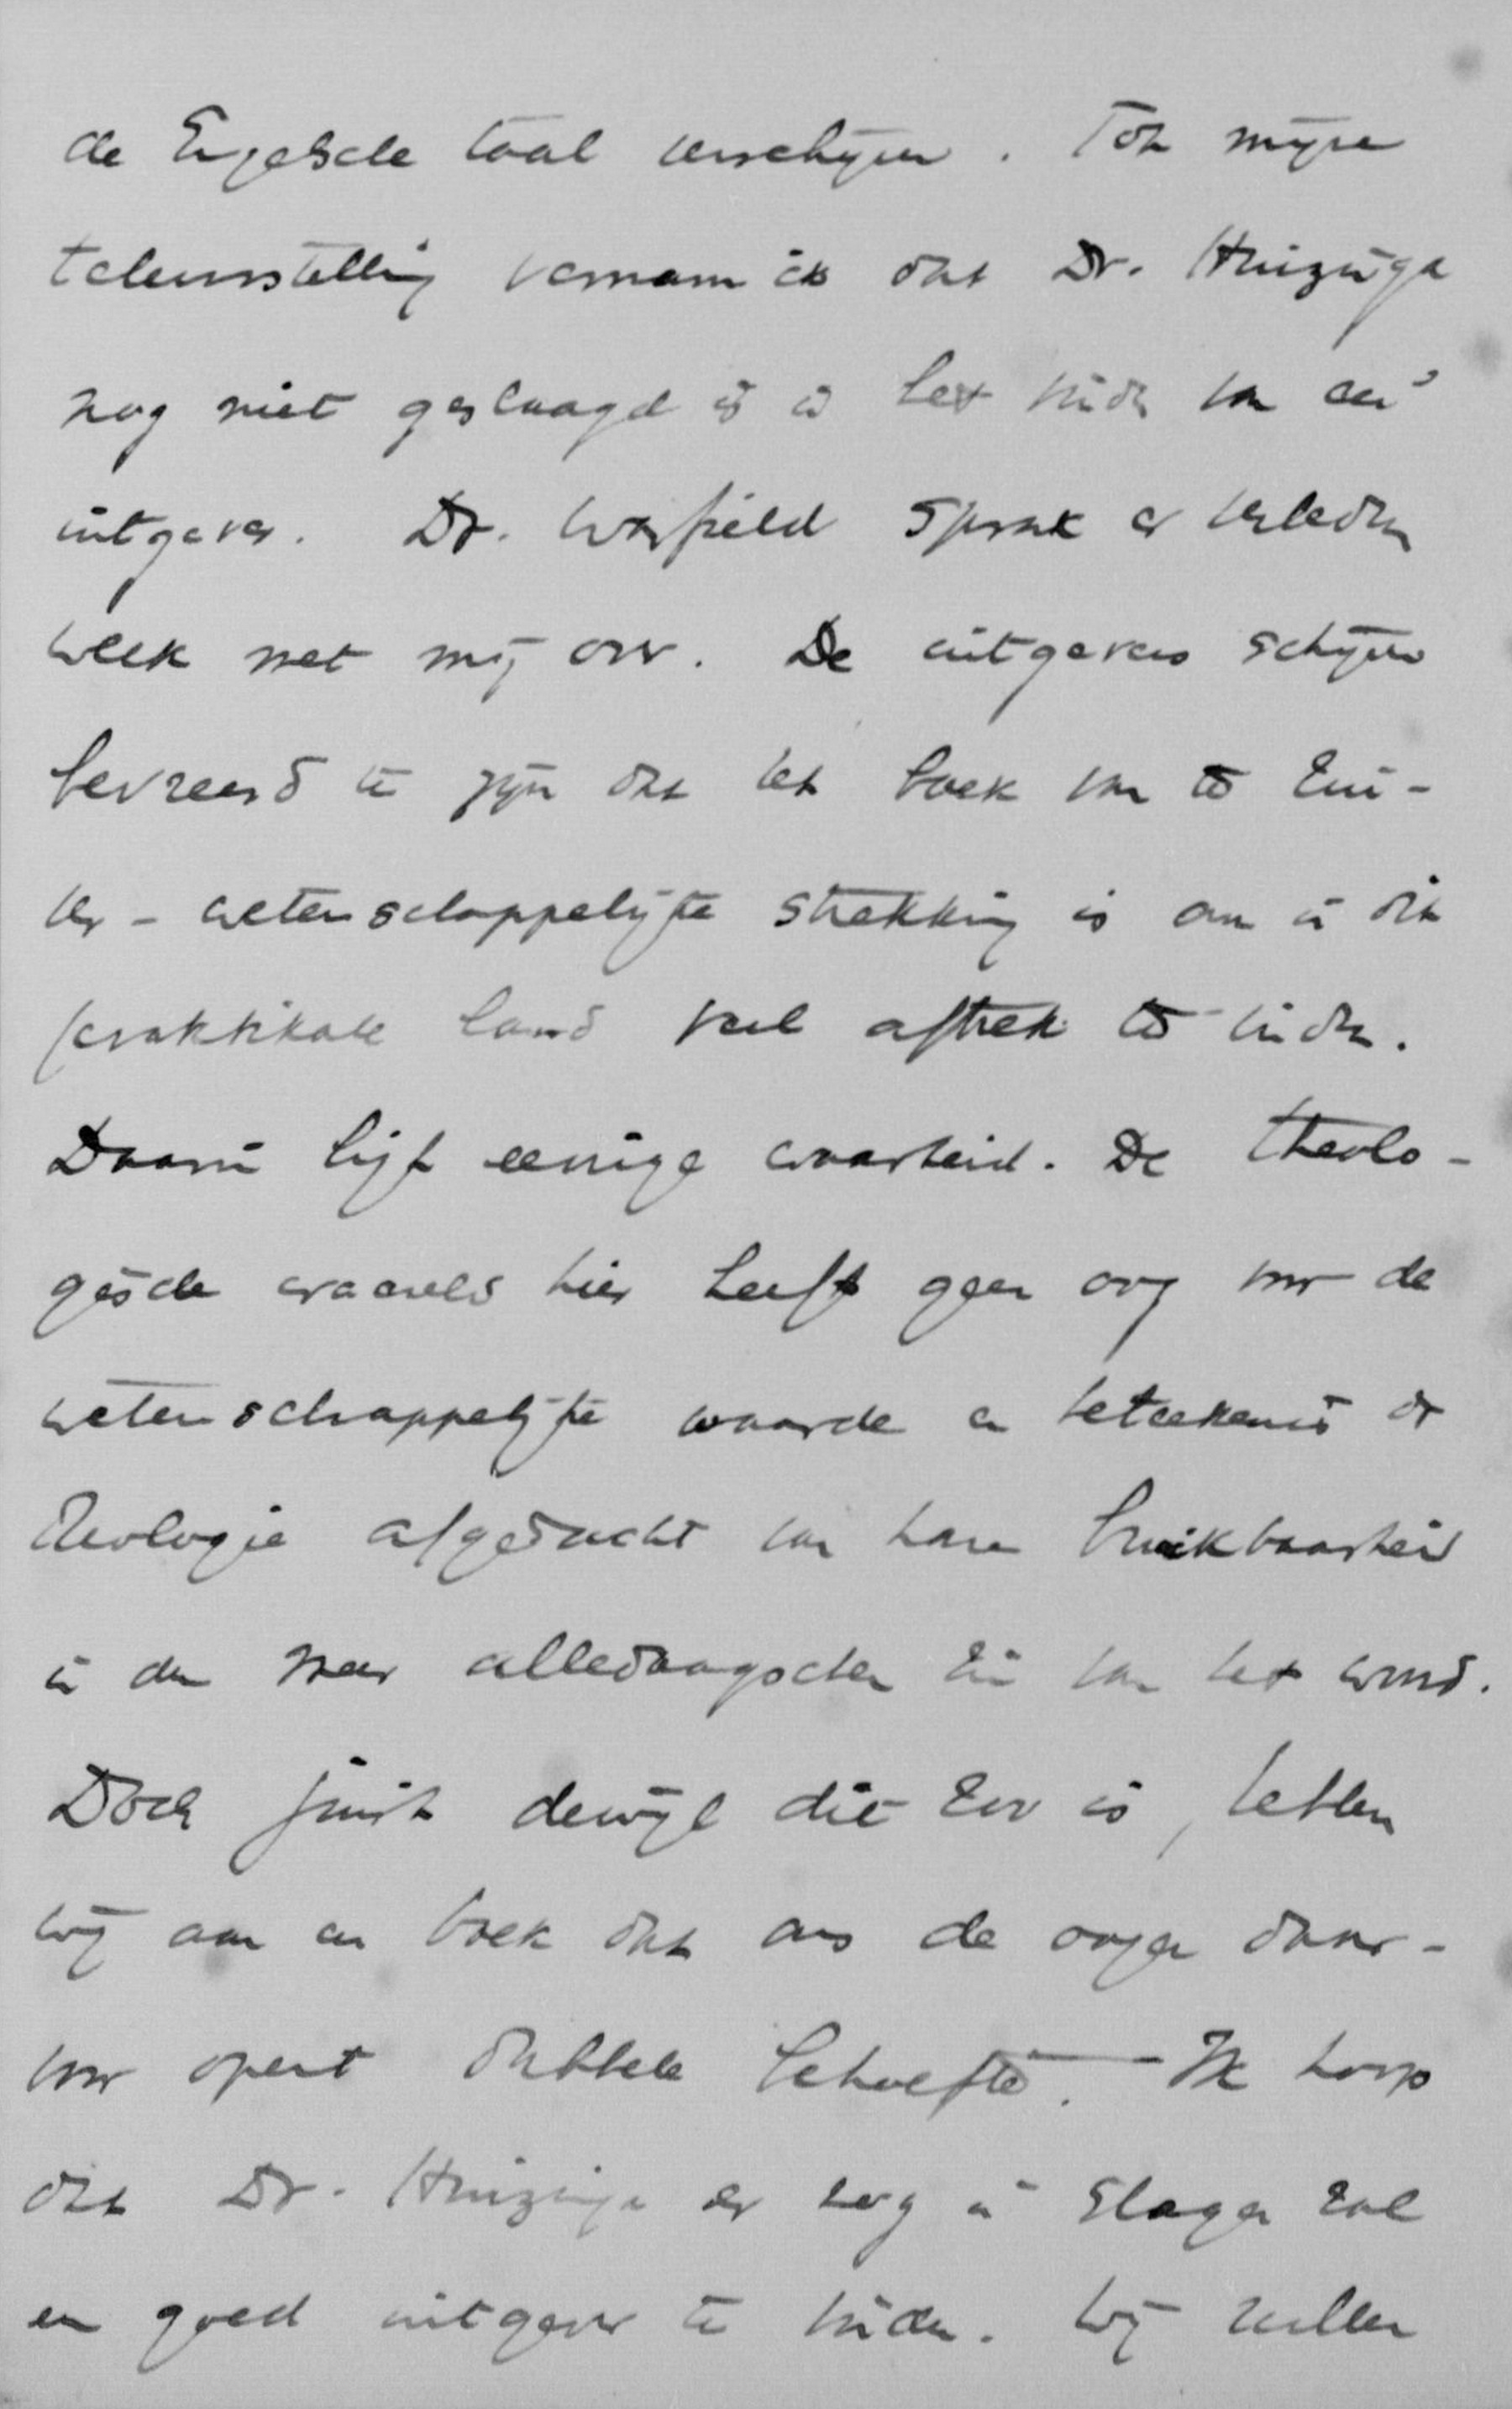 de Engelsche taal verschijnen. Tot mijne
teleurstelling vernam ik dat Dr. Huizinga
nog niet geslaagd is in het vinden van een
uitgever. Dr. Warfield sprak er verleden
week met mij over. De uitgevers schijnen
bevreesd te zijn dat het boek van te zui-
ver-wetenschappelijke strekking is om in dit
praktikale land veel aftrek te vinden.
Daarin ligt eenige waarheid. De theolo-
gische wereld hier heeft geen oog voor de
wetenschappelijke waarde en beteekenis der
Theologie afgedacht van hare bruikbaarheid
in den meer alledaagschen zin van het woord.
Doch juist dewijl dit zoo is, hebben
wij aan een boek dat ons de oogen daar-
voor opent dubbele behoefte. — Ik hoop
dat Dr. Huizinga er nog in slagen zal
een goed uitgever te vinden. Wij zullen